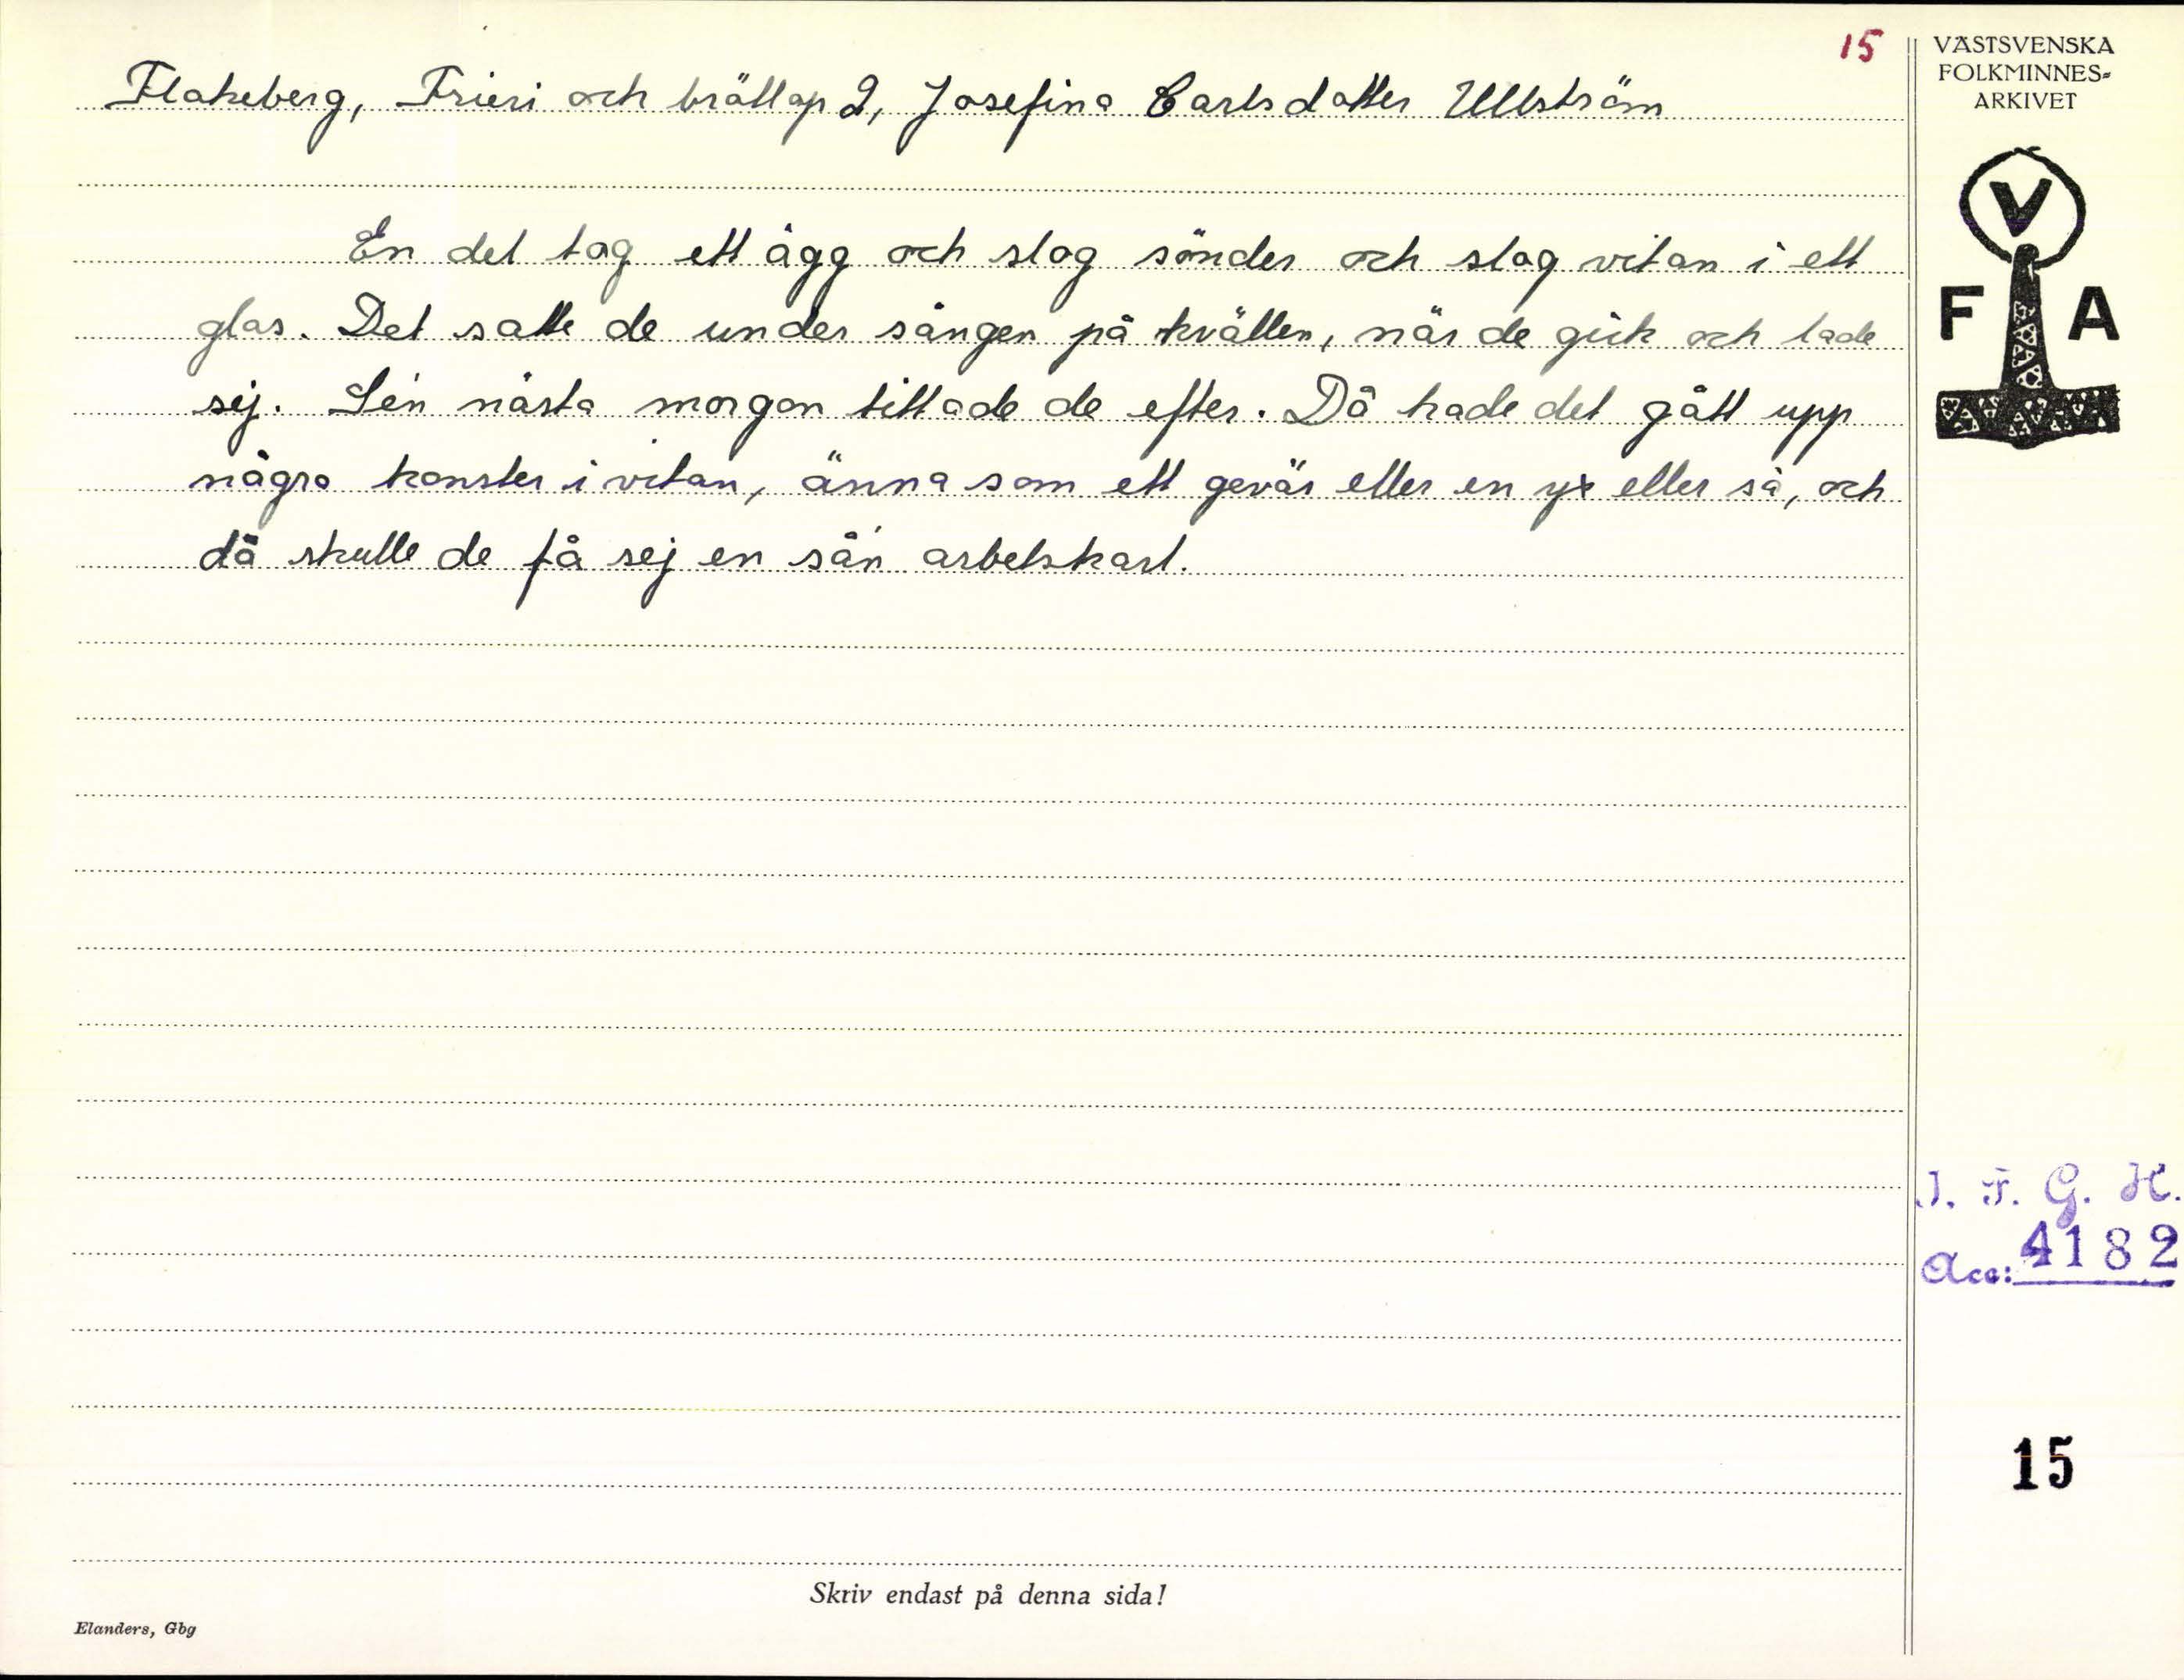 15
Flakeberg, Frieri och bröllop 2, Josefina Carlsdotter Ullström
En del tog ett ägg och slog sönder och slog vitan i ett
glas. Det satte de under sängen på kvällen, när de gick och lade
sej. Sén nästa morgon tittade de efter. Då hade det gått upp
några konster i vitan, änna som ett gevär eller en yx eller så, och
då skulle de få sej en sån arbetskarl.
VÄSTSVENSKA
FOLKMINNES=
ARKIVET
V
F A
I. F. G. H.
Acc: 4182
15
Skriv endast på denna sida!
Elanders, Gbg